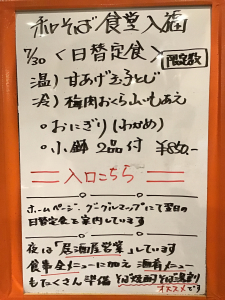 和そば食堂入福
7/30〈日替定食〉限定数
温）甘あげ玉子とじ
冷）梅肉おくら山いもあえ
○おにぎり（わかめ）
○小鉢2品付 ¥850.-
入口こちら
ホームページ、グーグルマップにて翌日の
日替定食を案内しています
夜は「居酒屋営業」しています
食事全メニューに加え 酒肴メニュー
もたくさん準備 そば焼酎そば湯割り
オススメです